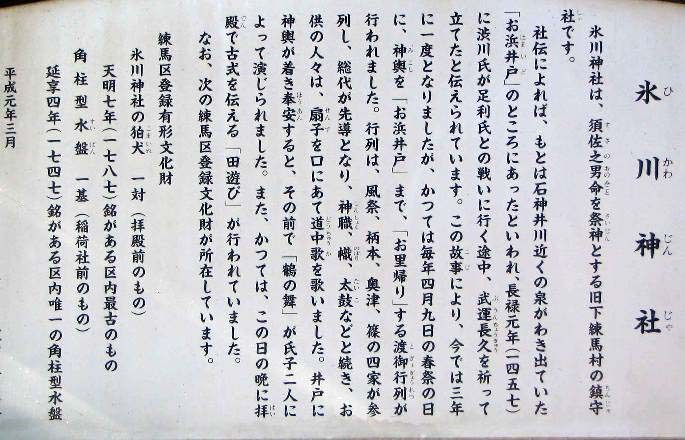 氷川神社
氷川神社は、須佐之男命を祭神とする旧下練馬村の鎮守
社です。
社伝によれば、もとは石神井川近くの泉がわき出ていた
「お浜井戸」のところにあったといわれ、長禄元年(一四五七)
に渋川氏が足利氏との戦いに行く途中、武運長久を祈って
立てたと伝えられています。この故事により、今では三年
に一度となりましたが、かつては毎年四月九日の春祭の日
に、神輿を「お浜井戸」まで、「お里帰り」する渡御行列が
行われました。行列は、風祭、柄本、奥津、篠の四家が参
列し、総代が先導となり、神職、幟、太鼓などと続き、お
供の人々は、扇子を口にあて道中歌を歌いました。井戸に
神輿が着き奉安すると、その前で「鶴の舞」が氏子二人に
よって演じられました。また、かつては、この日の晩に拝
殿で古式を伝える「田遊び」が行われていました。
なお、次の練馬区登録文化財が所在しています。
練馬区登録有形文化財
氷川神社の狛犬 一対(拝殿前のもの)
天明七年(一七八七)銘がある区内最古のもの
角柱型水盤 一基(稲荷社前のもの)
延享四年(一七四七)銘がある区内唯一の角柱型水盤
平成元年三月